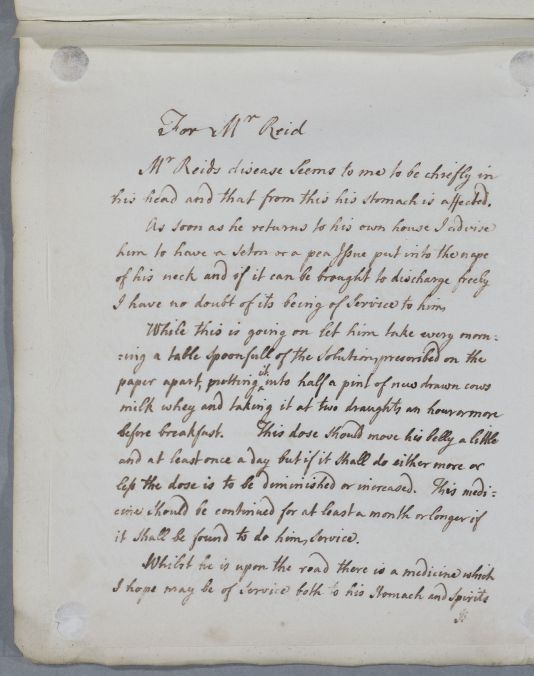 For Mr Reid
Mr Reids disease seems to me to be chiefly in
his head and that from this his stomach is affected.
As soon as he returns to his own house I advise
him to have a seton or a pea Issue put into the nape
of his neck and if it can be brought to discharge freely
I have no doubt of its being of service to him.
While this is going on let him take every morn:
:ing a table spoonfull of the Solution, prescribed on the
paper apart, putting it into half a pint of new drawn cows
milk whey and taking it at two draughts an hour or more
before breakfast. This dose should move his belly a little
and at least once a day but if it shall do either more or
less the dose is to be diminished or increased. This medi:
cine should be continued for at least a month or longer if
it shall be found to do him service.
Whilst he is upon the road there is a medicine which
I hope may be of service both to his stomach and spirits